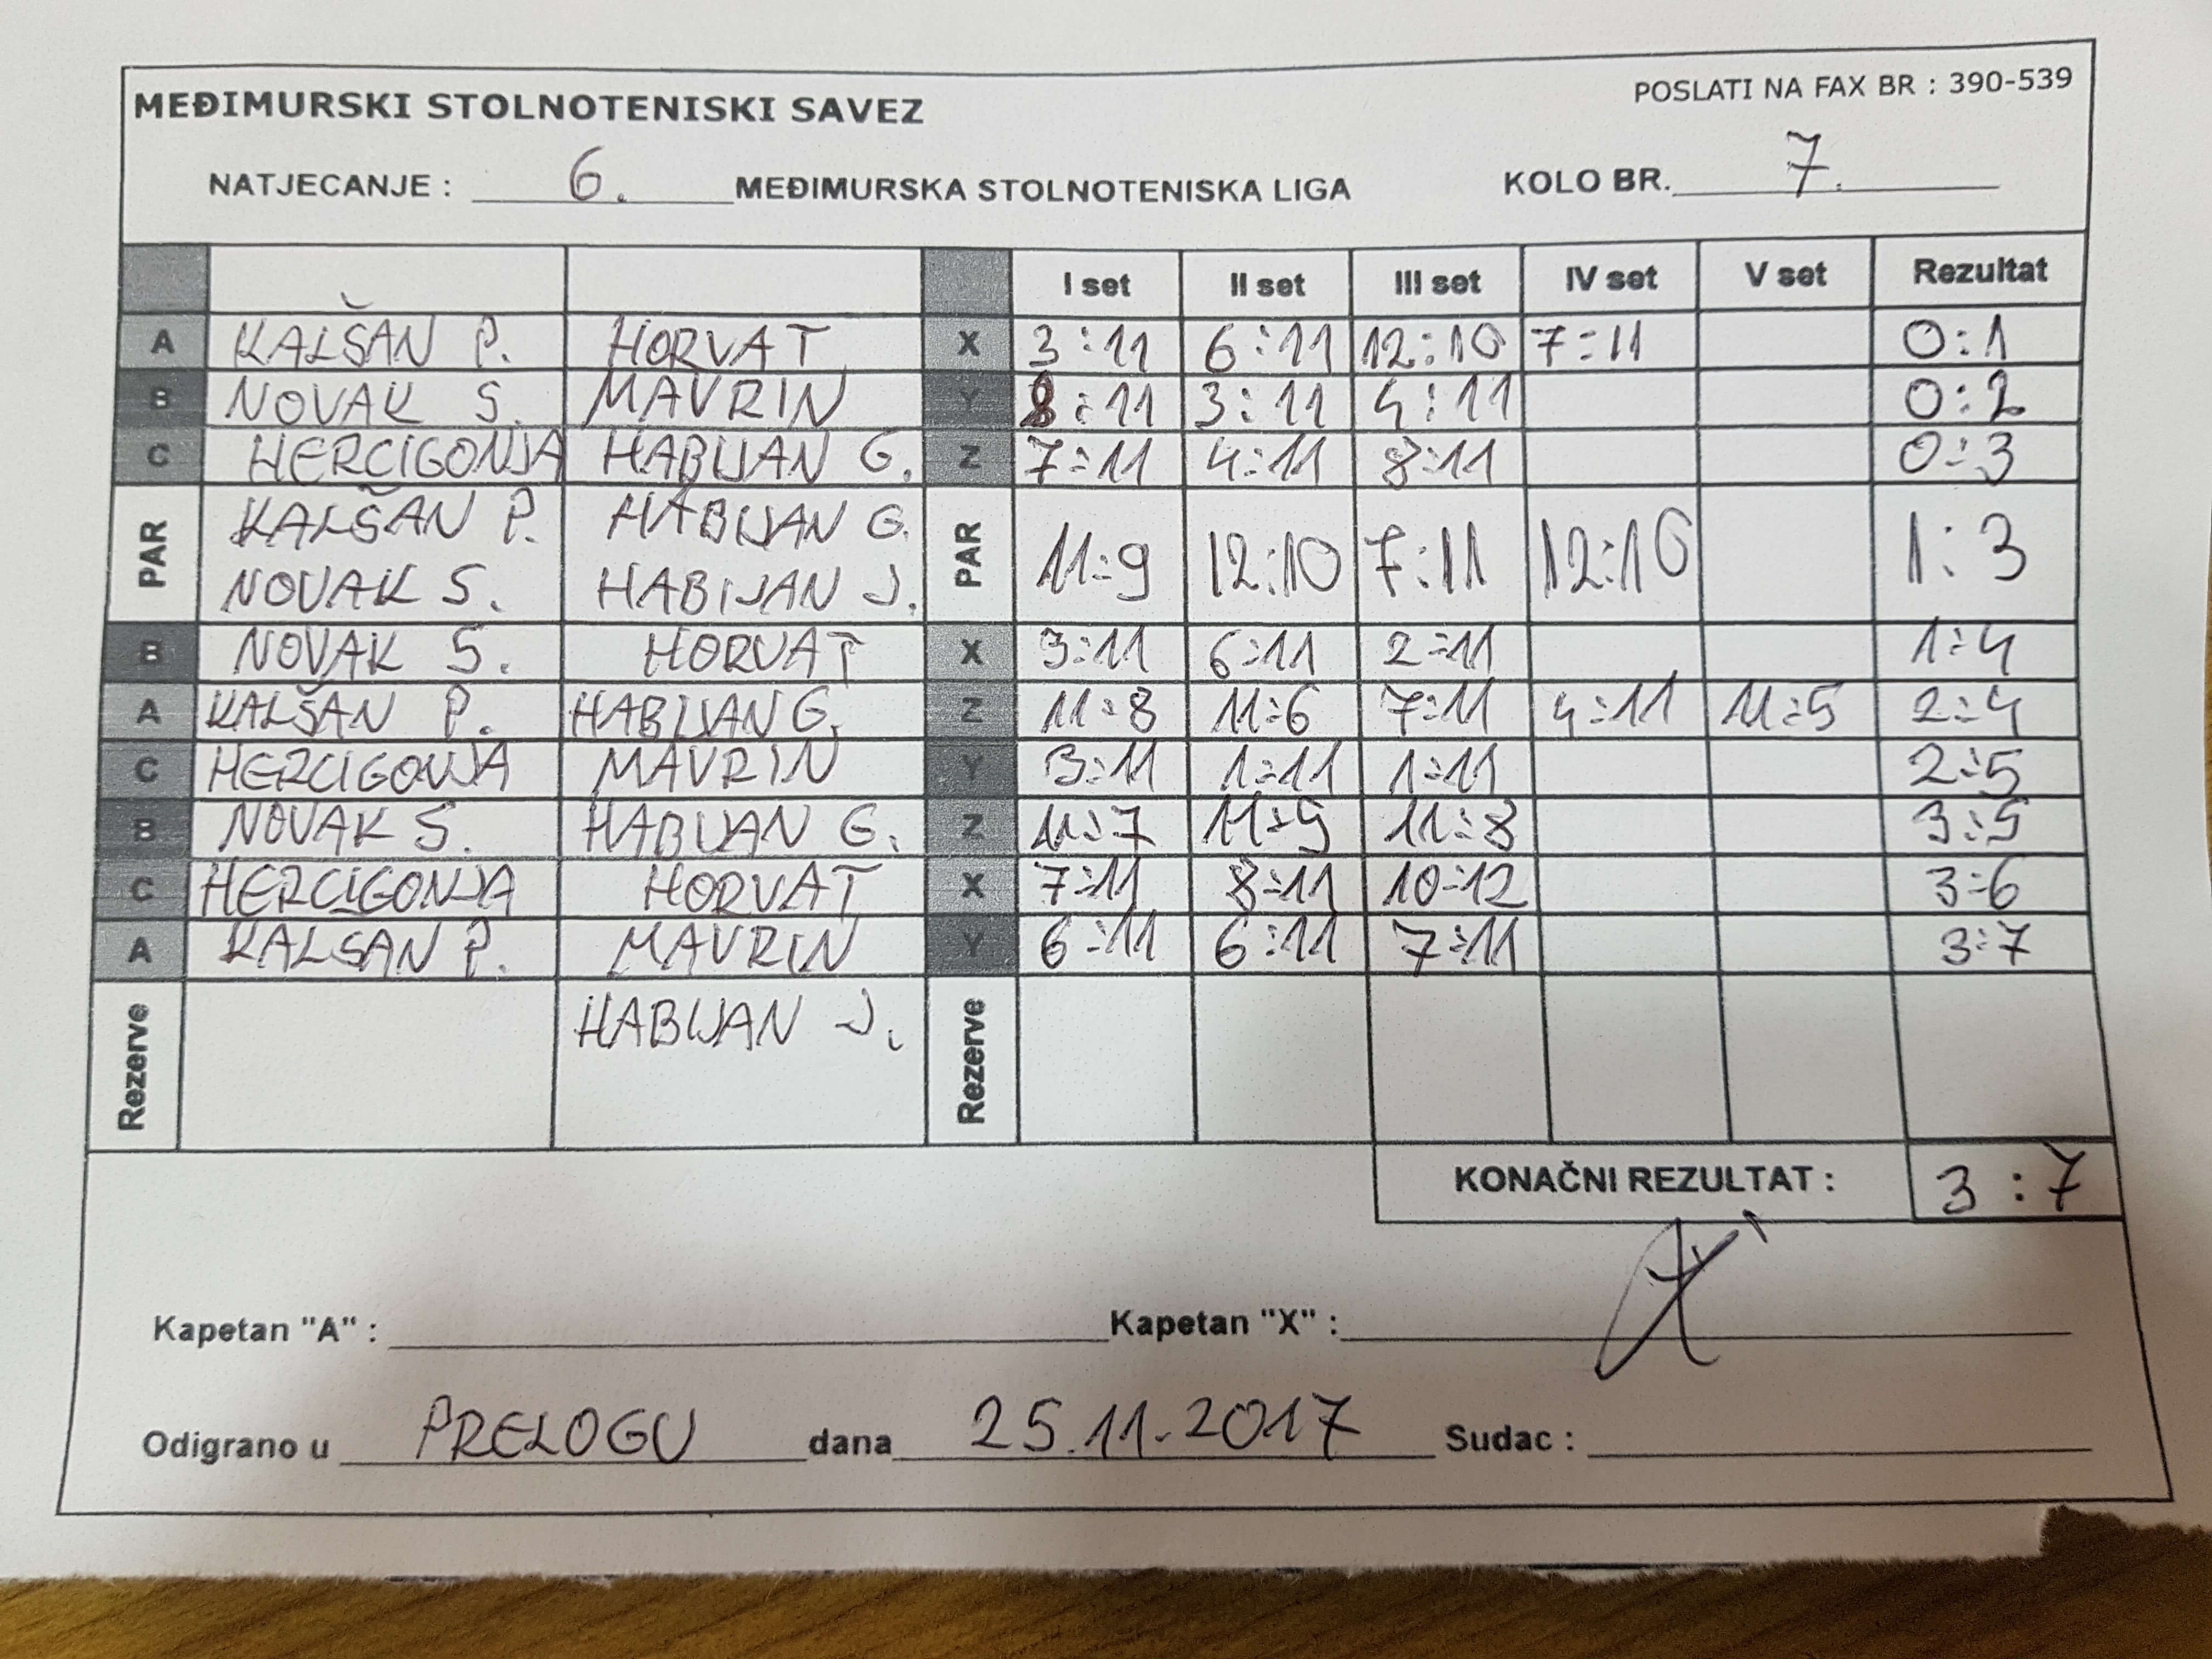 MEĐIMURSKI STOLNOTENISKI SAVEZ
POSLATI NA FAX BR : 390-539
NATJECANJE : 6. MEĐIMURSKA STOLNOTENISKA LIGA KOLO BR. 7.
I set II set III set IV set V set Rezultat
A KALŠAN P. HORVAT X 3:11 6:11 12:10 7:11 0:1
B NOVAK S. MAVRIN Y 8:11 3:11 4:11 0:2
C HERCIGONJA HABIJAN G. Z 7:11 4:11 8:11 0:3
PAR KALŠAN P. HABIJAN G. PAR 11:9 12:10 7:11 12:10 1:3
NOVAK S. HABIJAN J.
B NOVAK S. HORVAT X 3:11 6:11 2:11 1:4
A KALŠAN P. HABIJAN G. Z 11:8 11:6 7:11 4:11 11:5 2:4
C HERCIGONJA MAVRIN Y 3:11 1:11 1:11 2:5
B NOVAK S. HABIJAN G. Z 11:7 11:9 11:8 3:5
C HERCIGONJA HORVAT X 7:11 8:11 10:12 3:6
A KALSAN P. MAVRIN Y 6:11 6:11 7:11 3:7
Rezerve HABIJAN J. Rezerve
KONAČNI REZULTAT : 3:7
Kapetan "A" : Kapetan "X" :
Odigrano u PRELOGU dana 25.11.2017 Sudac :